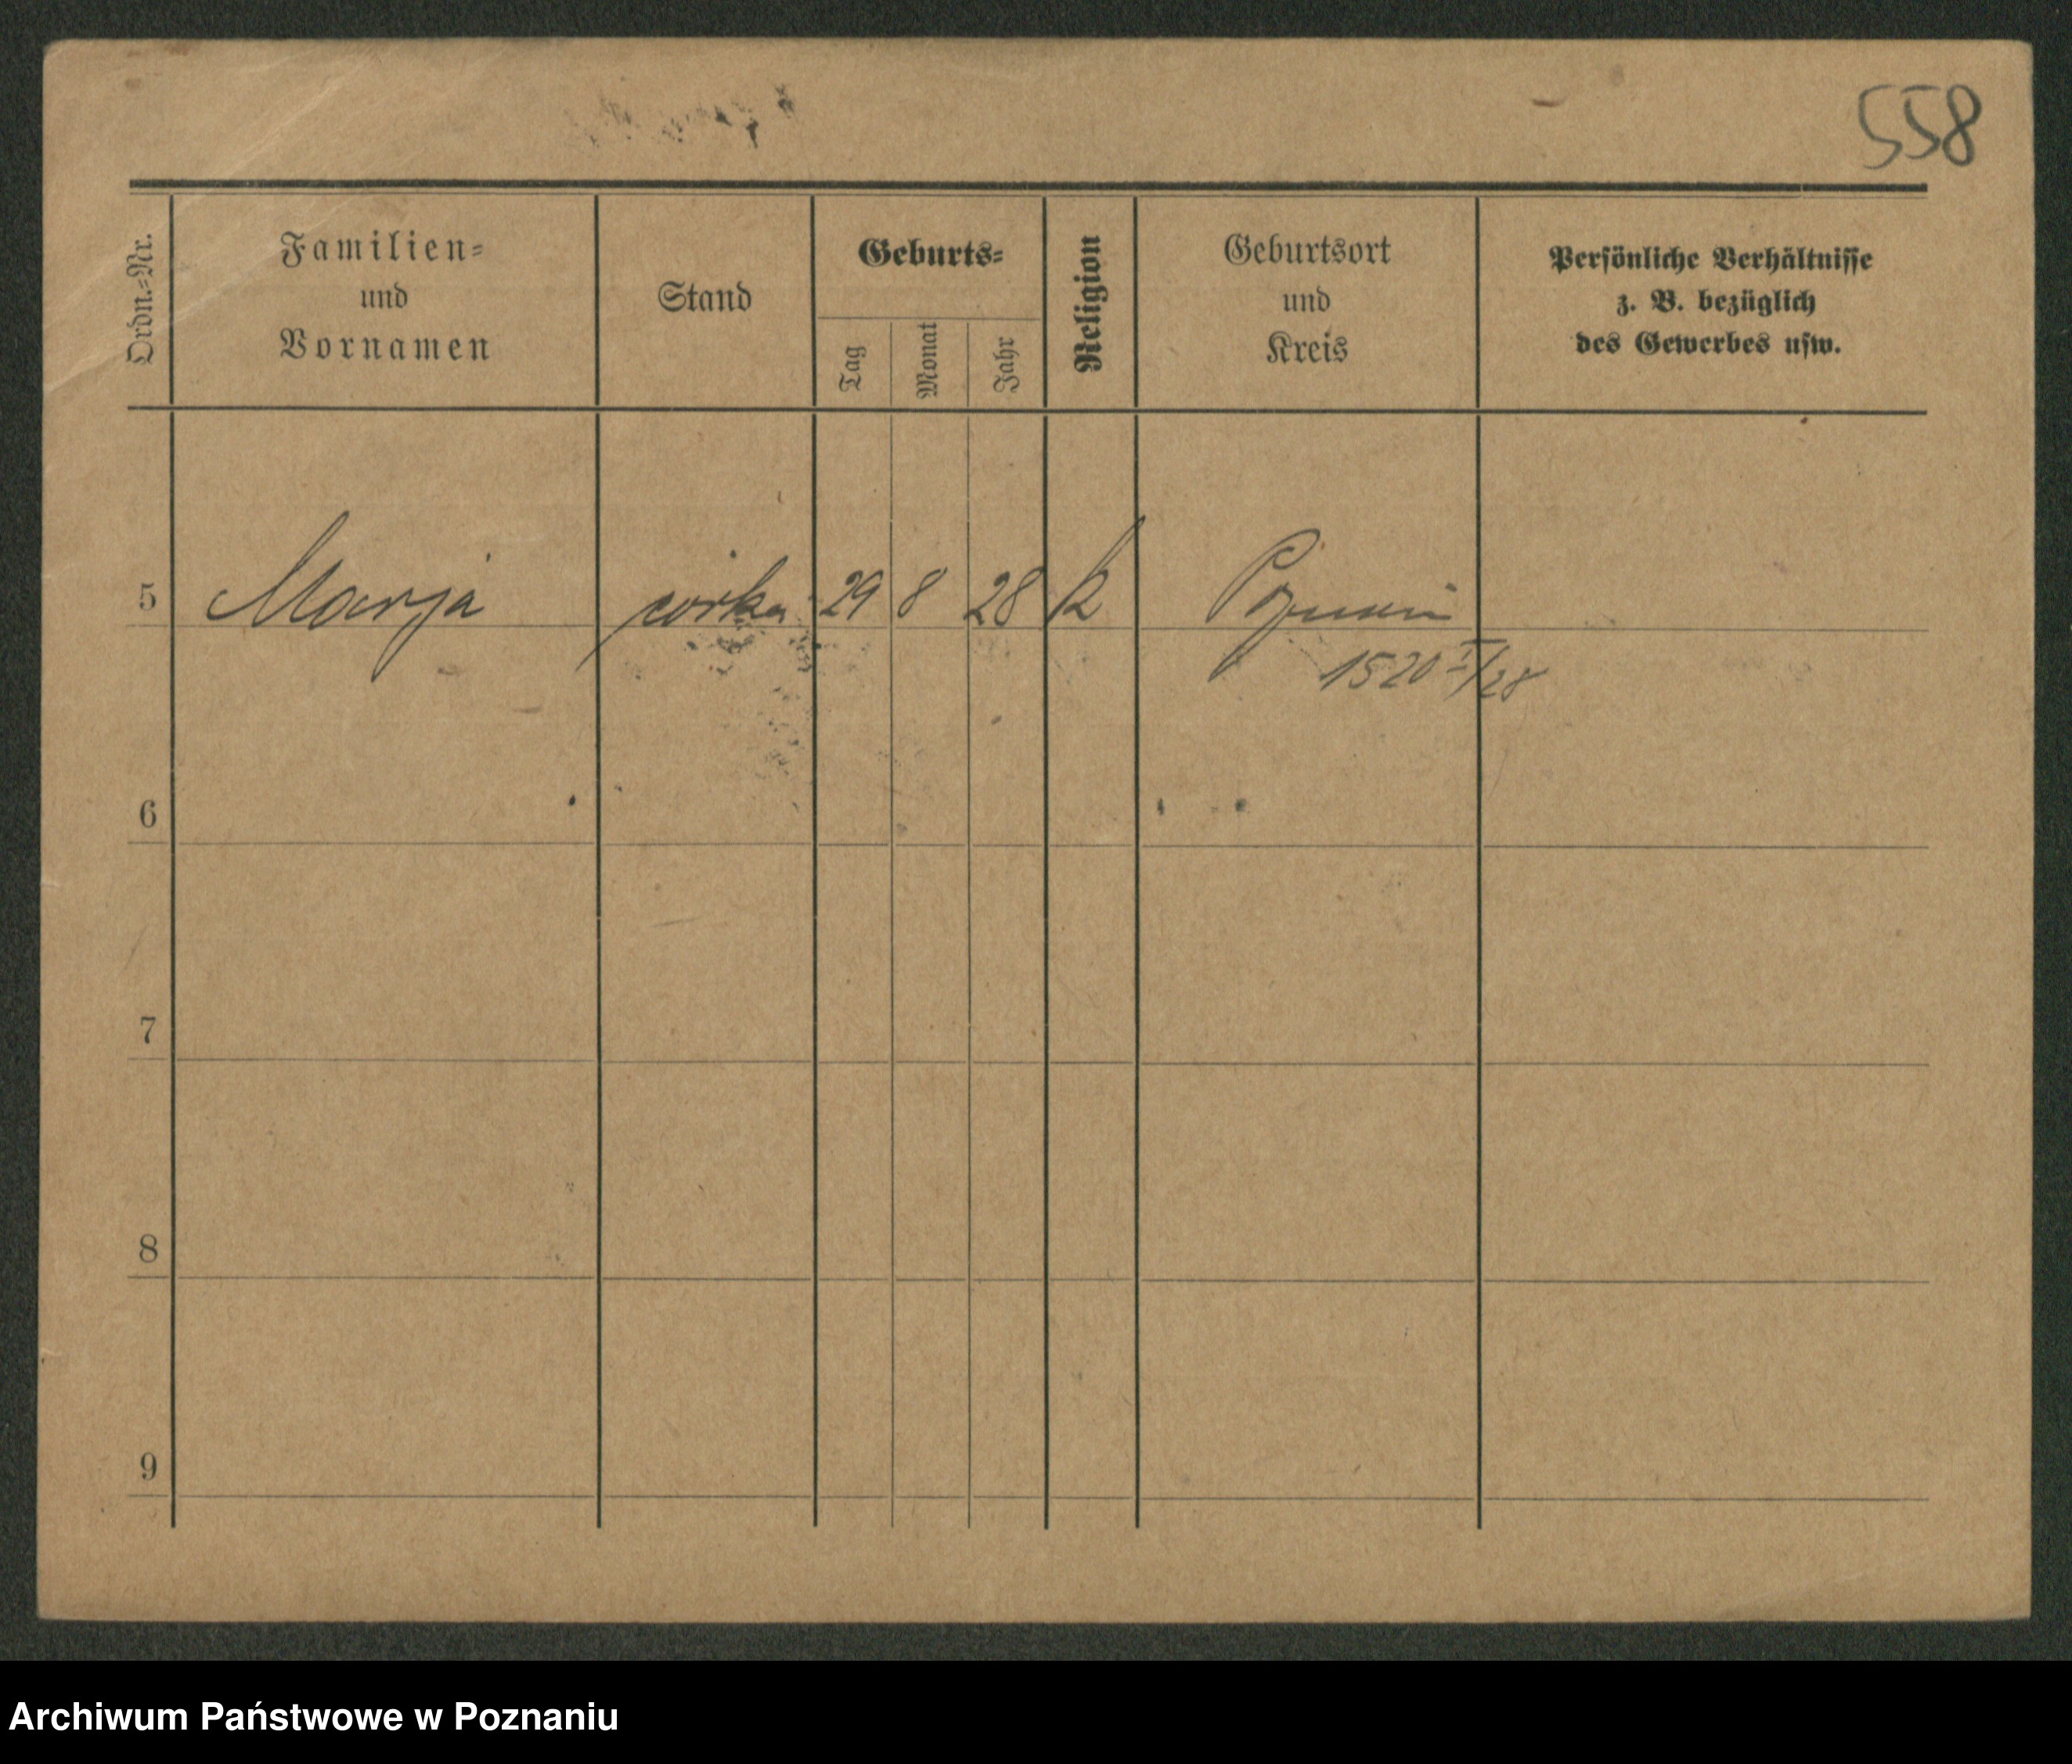 558
Ordn.-Nr.
Familien-
und
Vornamen
Stand
Geburts-
Tag
Monat
Jahr
Religion
Geburtsort
und
Kreis
Persönliche Verhältnisse
z. B. bezüglich
des Gewerbes usw.
5 Marja córka 29 8 28 k Poznań
1520 I/28
6
7
8
9
Archiwum Państwowe w Poznaniu